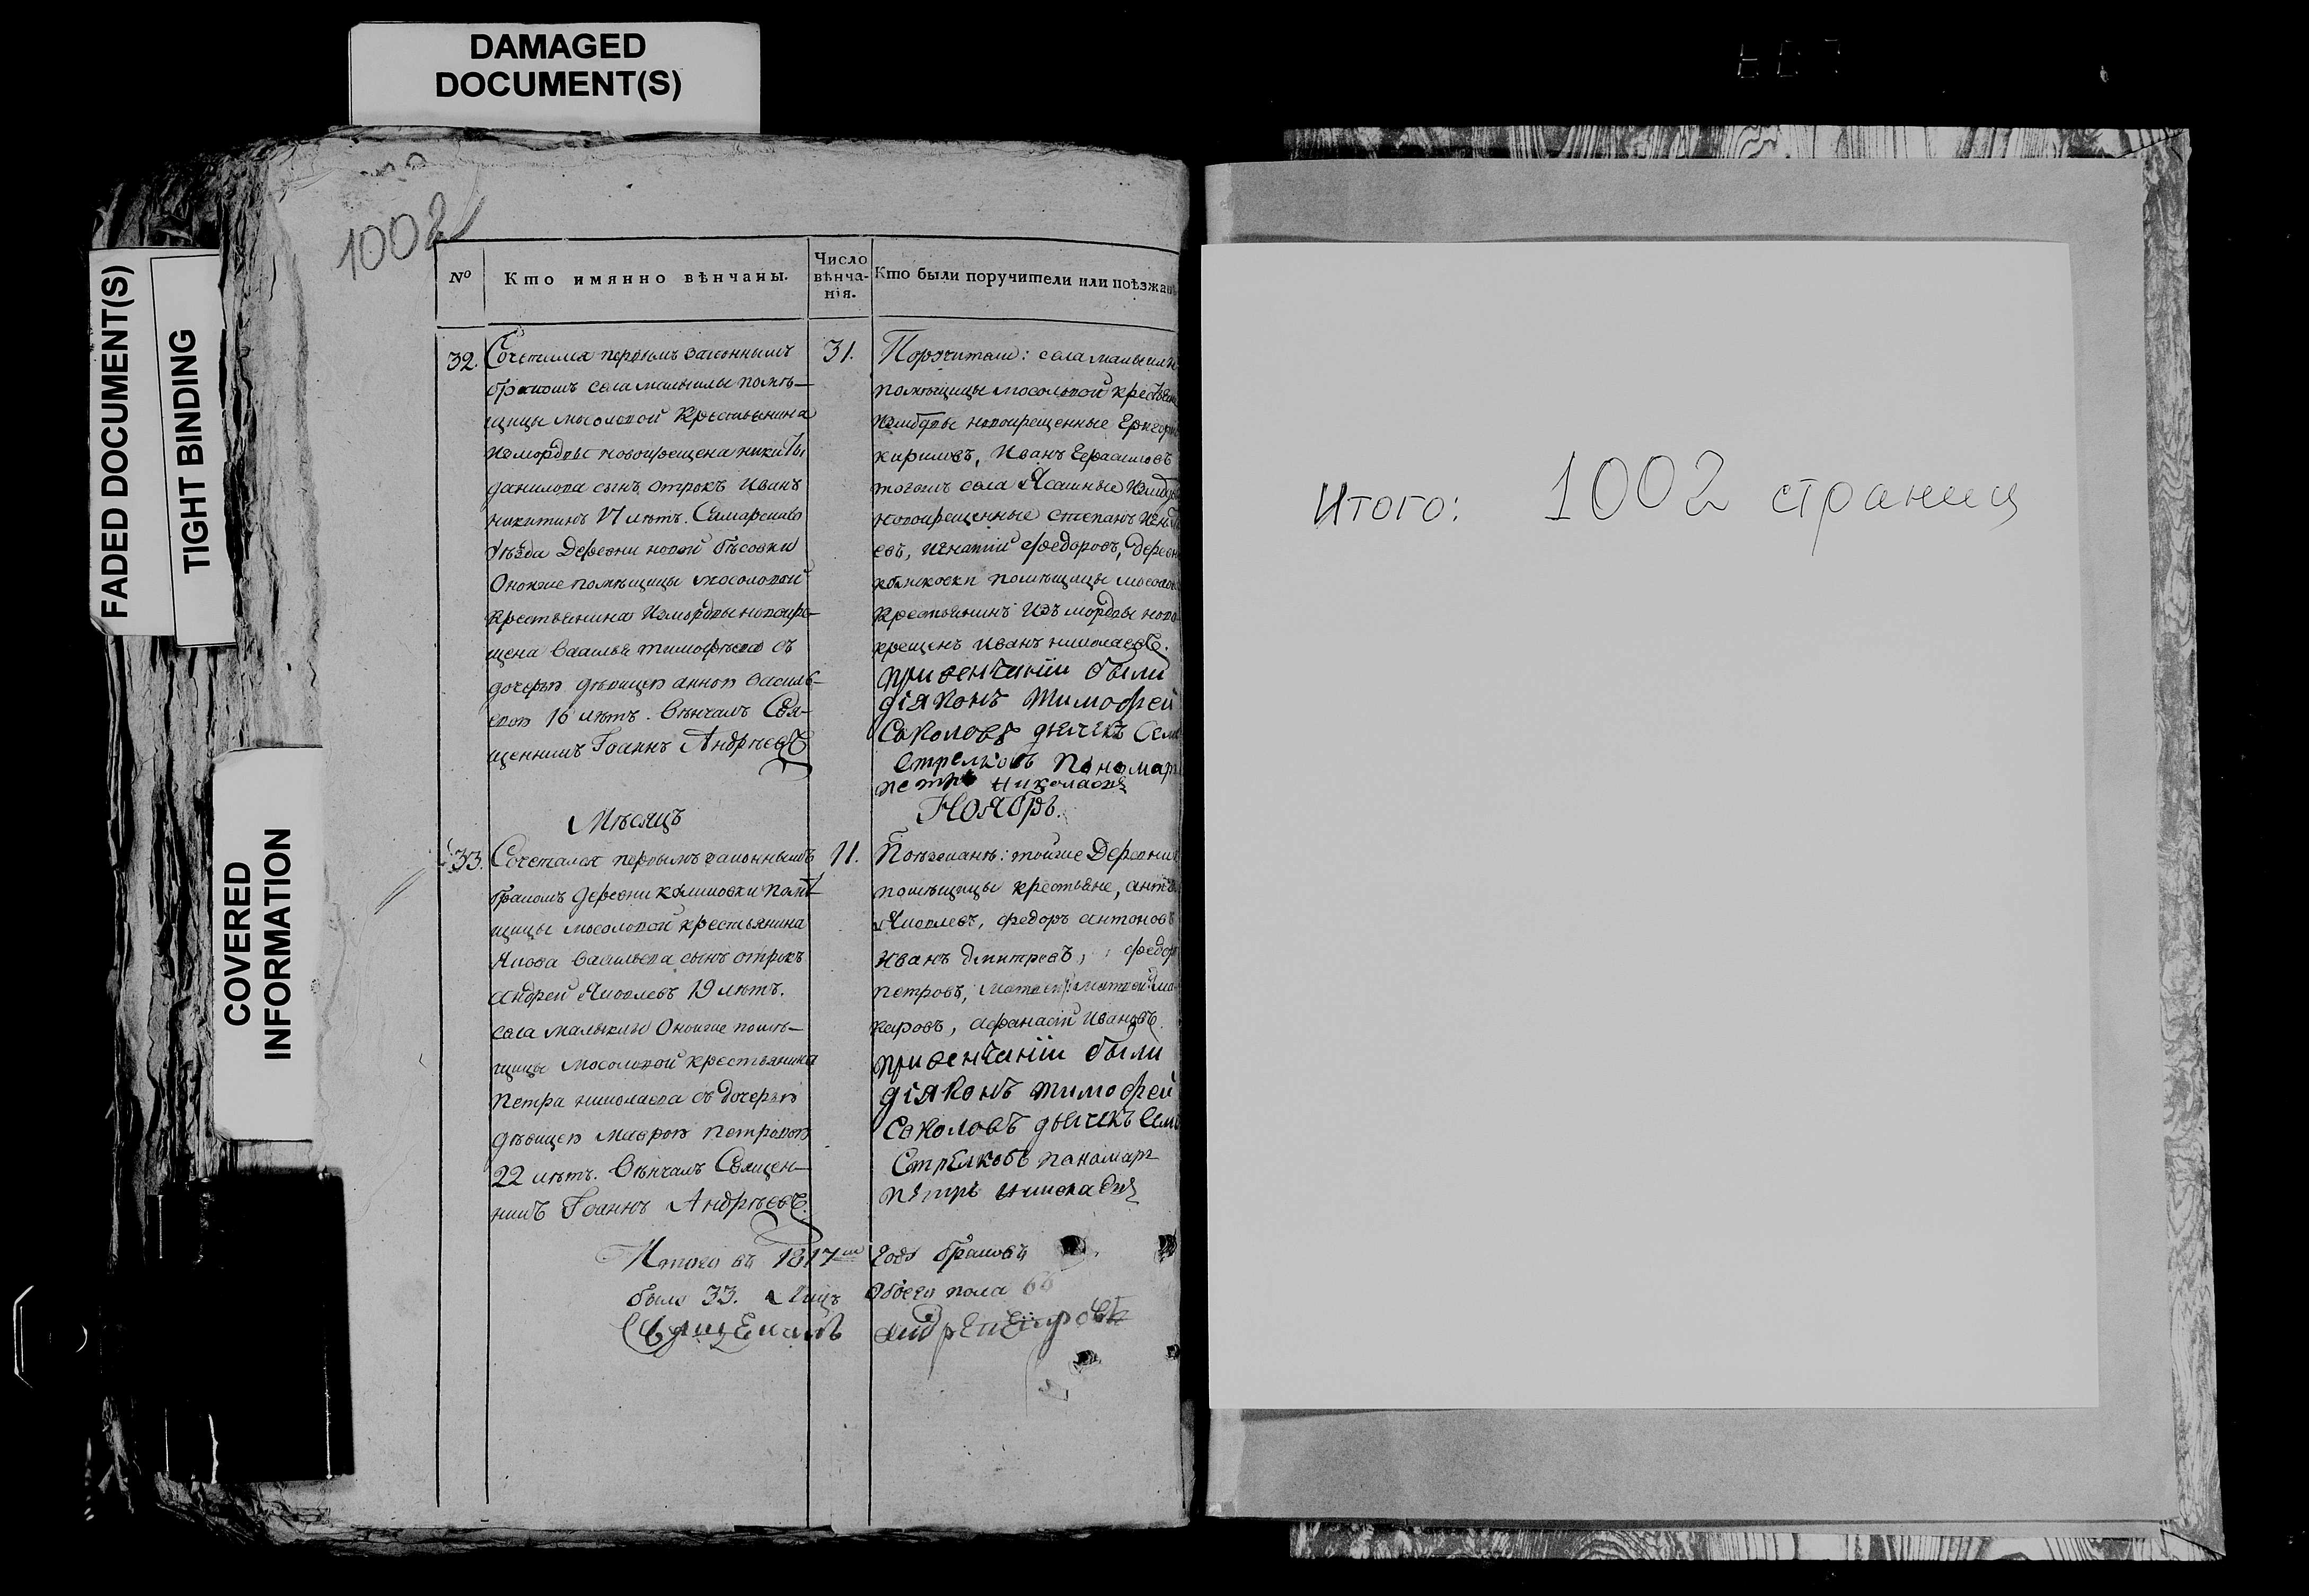 DAMAGED
DOCUMENT(S)
FADED DOCUMENT(S)
TIGHT BINDING
COVERED
INFORMATION
1002
№
Кто имянно вѣнчаны.
Число
вѣнча-
нія.
Кто были поручители или поѣзжан
32.
Сочетался первымъ законнымъ
бракомъ села малыклы помѣ-
щицы мосоловой крестьянина
измордвы новокрещена никиты
данилова сынъ отрокъ иванъ
никитинъ 17 лѣтъ. Самарскаго
уѣзда деревни новой бѣсовки
Оноюже помѣщицы мосоловой
крестьянина измордвы новокре-
щена василья тимофѣева съ
дочерью дѣвицею анною василь-
евою 16 лѣтъ. Вѣнчалъ Свя-
щенникъ Іоаннъ Андрѣевъ
31.
Поручители: села малыклы
помѣщицы мосоловой крестьяне
измордвы новокрещенные Григорій
кириловъ, Иванъ Герасимовъ
тогожъ села Ясашные измордвы
новокрещенные степанъ
евъ, игнатій федоровъ, деревни
помѣщицы мосоловой
крестьянинъ изъ мордвы ново-
крещенъ иванъ николаевъ.
при венчаніи были
діяконъ тимофей
Соколовъ дьячекъ Семе
Стрелковъ пономарь
петръ николаевъ
Мѣсяцъ
Ноябрь.
33.
Сочетался первымъ законнымъ
бракомъ деревни помѣ-
щицы мосоловой крестьянина
Якова васильева сынъ отрокъ
андрей Яковлевъ 19 лѣтъ.
села малыклы Оноюже помѣ-
щицы мосоловой крестьянина
петра николаева съ дочерью
дѣвицею маврою петровою
22 лѣтъ. Вѣнчалъ Священ-
никъ Іоаннъ Андрѣевъ.
11.
Поѣзжане: тоиже Деревни
помѣщицы крестьяне, антонъ
Яковлевъ, федоръ антоновъ
иванъ дмитревъ, федоръ
петровъ, ма-
каровъ, афанасій ивановъ.
при венчаніи были
діяконъ тимофей
Соколовъ дьячекъ Семе
Стрелковъ панамарь
петръ николаевъ
Итого въ 1817м году браковъ
было 33. а лицъ обоего пола 66
Священникъ
Итого: 1002 страниц